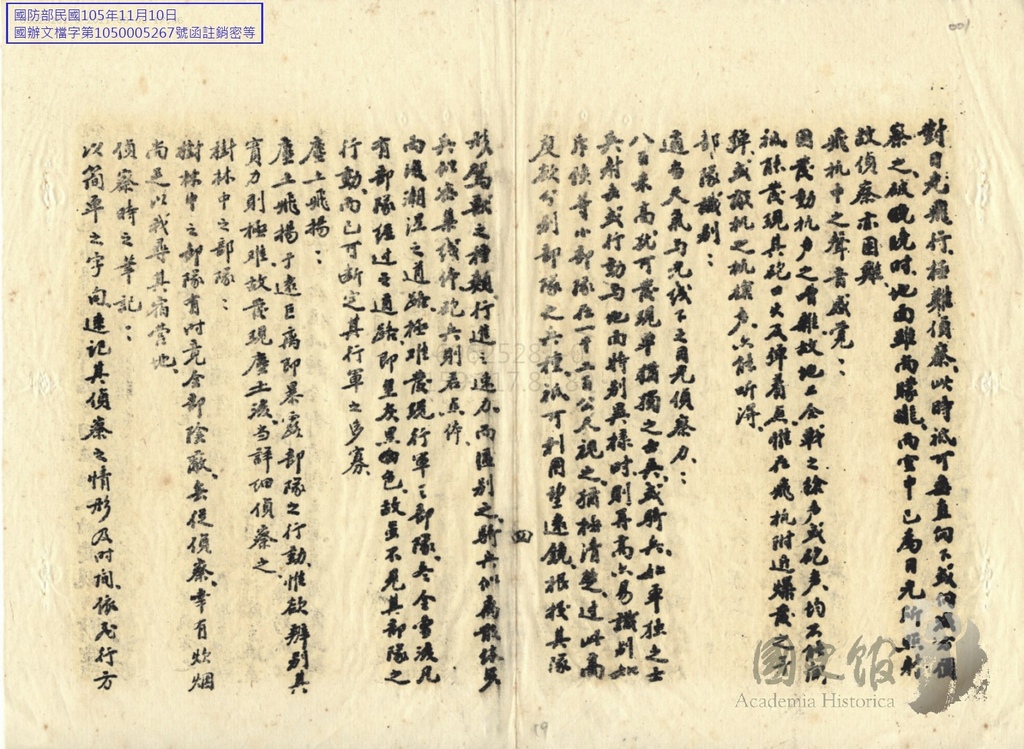 國防部民國105年11月10日
國辦文檔字第1050005267號函註銷密等
001
對日光飛行極難偵察、此時祇可垂直向下或向
察之、破曉時、地面雖尚朦朧、而空中已為日光所照射
故偵察亦困難
飛机中之聲音感覺：
因發動机声之音雜、故地上全戰之槍声或砲声均不能聞
祇能發現其砲口火及彈着点、惟在飛机附近爆發之
彈或敵机之机槍声、亦能听得
部隊識別：
適當天氣与光线下之目光偵察力：
八百米高、犹可發現單獨之步兵或騎兵、如單独之士
兵射击或行動与地面特別異樣时、則再高亦易識別如
斥侯等小部隊在一千二百公尺視之、猶極清楚、过此高
度欲分別部隊之兵種、祇可利用望遠鏡、根據其隊
形駕獸之種類、行進之速力、而區別之、騎兵似
兵似密集线條、砲兵則若点條
雨後潮溼之道路、極难發現行軍之部隊、冬令雪後凡
有部隊經过之道路、即呈灰黑色、故虽不見其部隊之
行動、而已可断定其行軍之多寡
塵土飛揚：
塵土飛揚、于遠距离即暴露部隊之行動、惟欲辨別其
實力則極难、故發現塵土後、当詳細偵察之
樹林中之部隊：
樹林中之部隊有时竟全部陰蔽、無從偵察、幸有炊烟
尚足以我尋其宿營地、
偵察時之筆記：
以簡单之字句、速記其偵察之情形及时间、依飛行方
四
19
國史館
Academia Historica